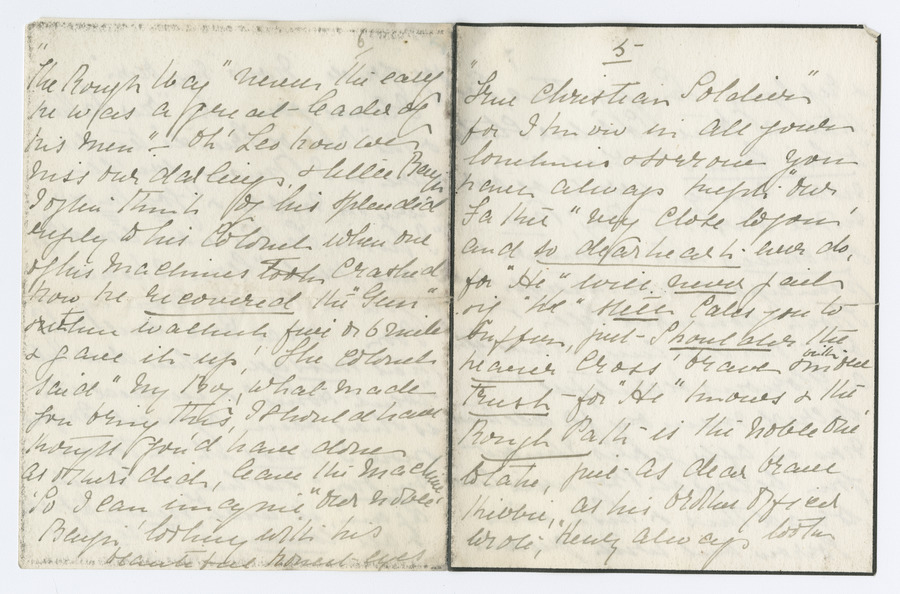 5
"True Christian Soldier"
for I know in all your
loneliness & sorrow you
have always kept "our
Father" very close to you
and so dear heart ever do,
for "He" will never fail
if "He" still calls you to
suffer, just Shoulder the
heavier Cross' brave with one
Trust – for "He" knows & the
Rough Path is the noble One
to take, just as dear brave
as his brother Officer
wrote, "Henry always took
6
"The Rough Way" never the easy
he was a great leader of
his men" – Oh' Leo how we
miss our darlings, & little
I often think of his splendid
reply to his Colonel when one
of his Machines took Crashed
how he recovered the "Gun"
& then walked five or 6 miles
& gave it up', The Colonel
said "My Boy, what made
you bring this, I should have
thought you'd have done
as others did, leave the Machine,
'So I can imagine "Our noble
looking with his
beautiful honest eyes